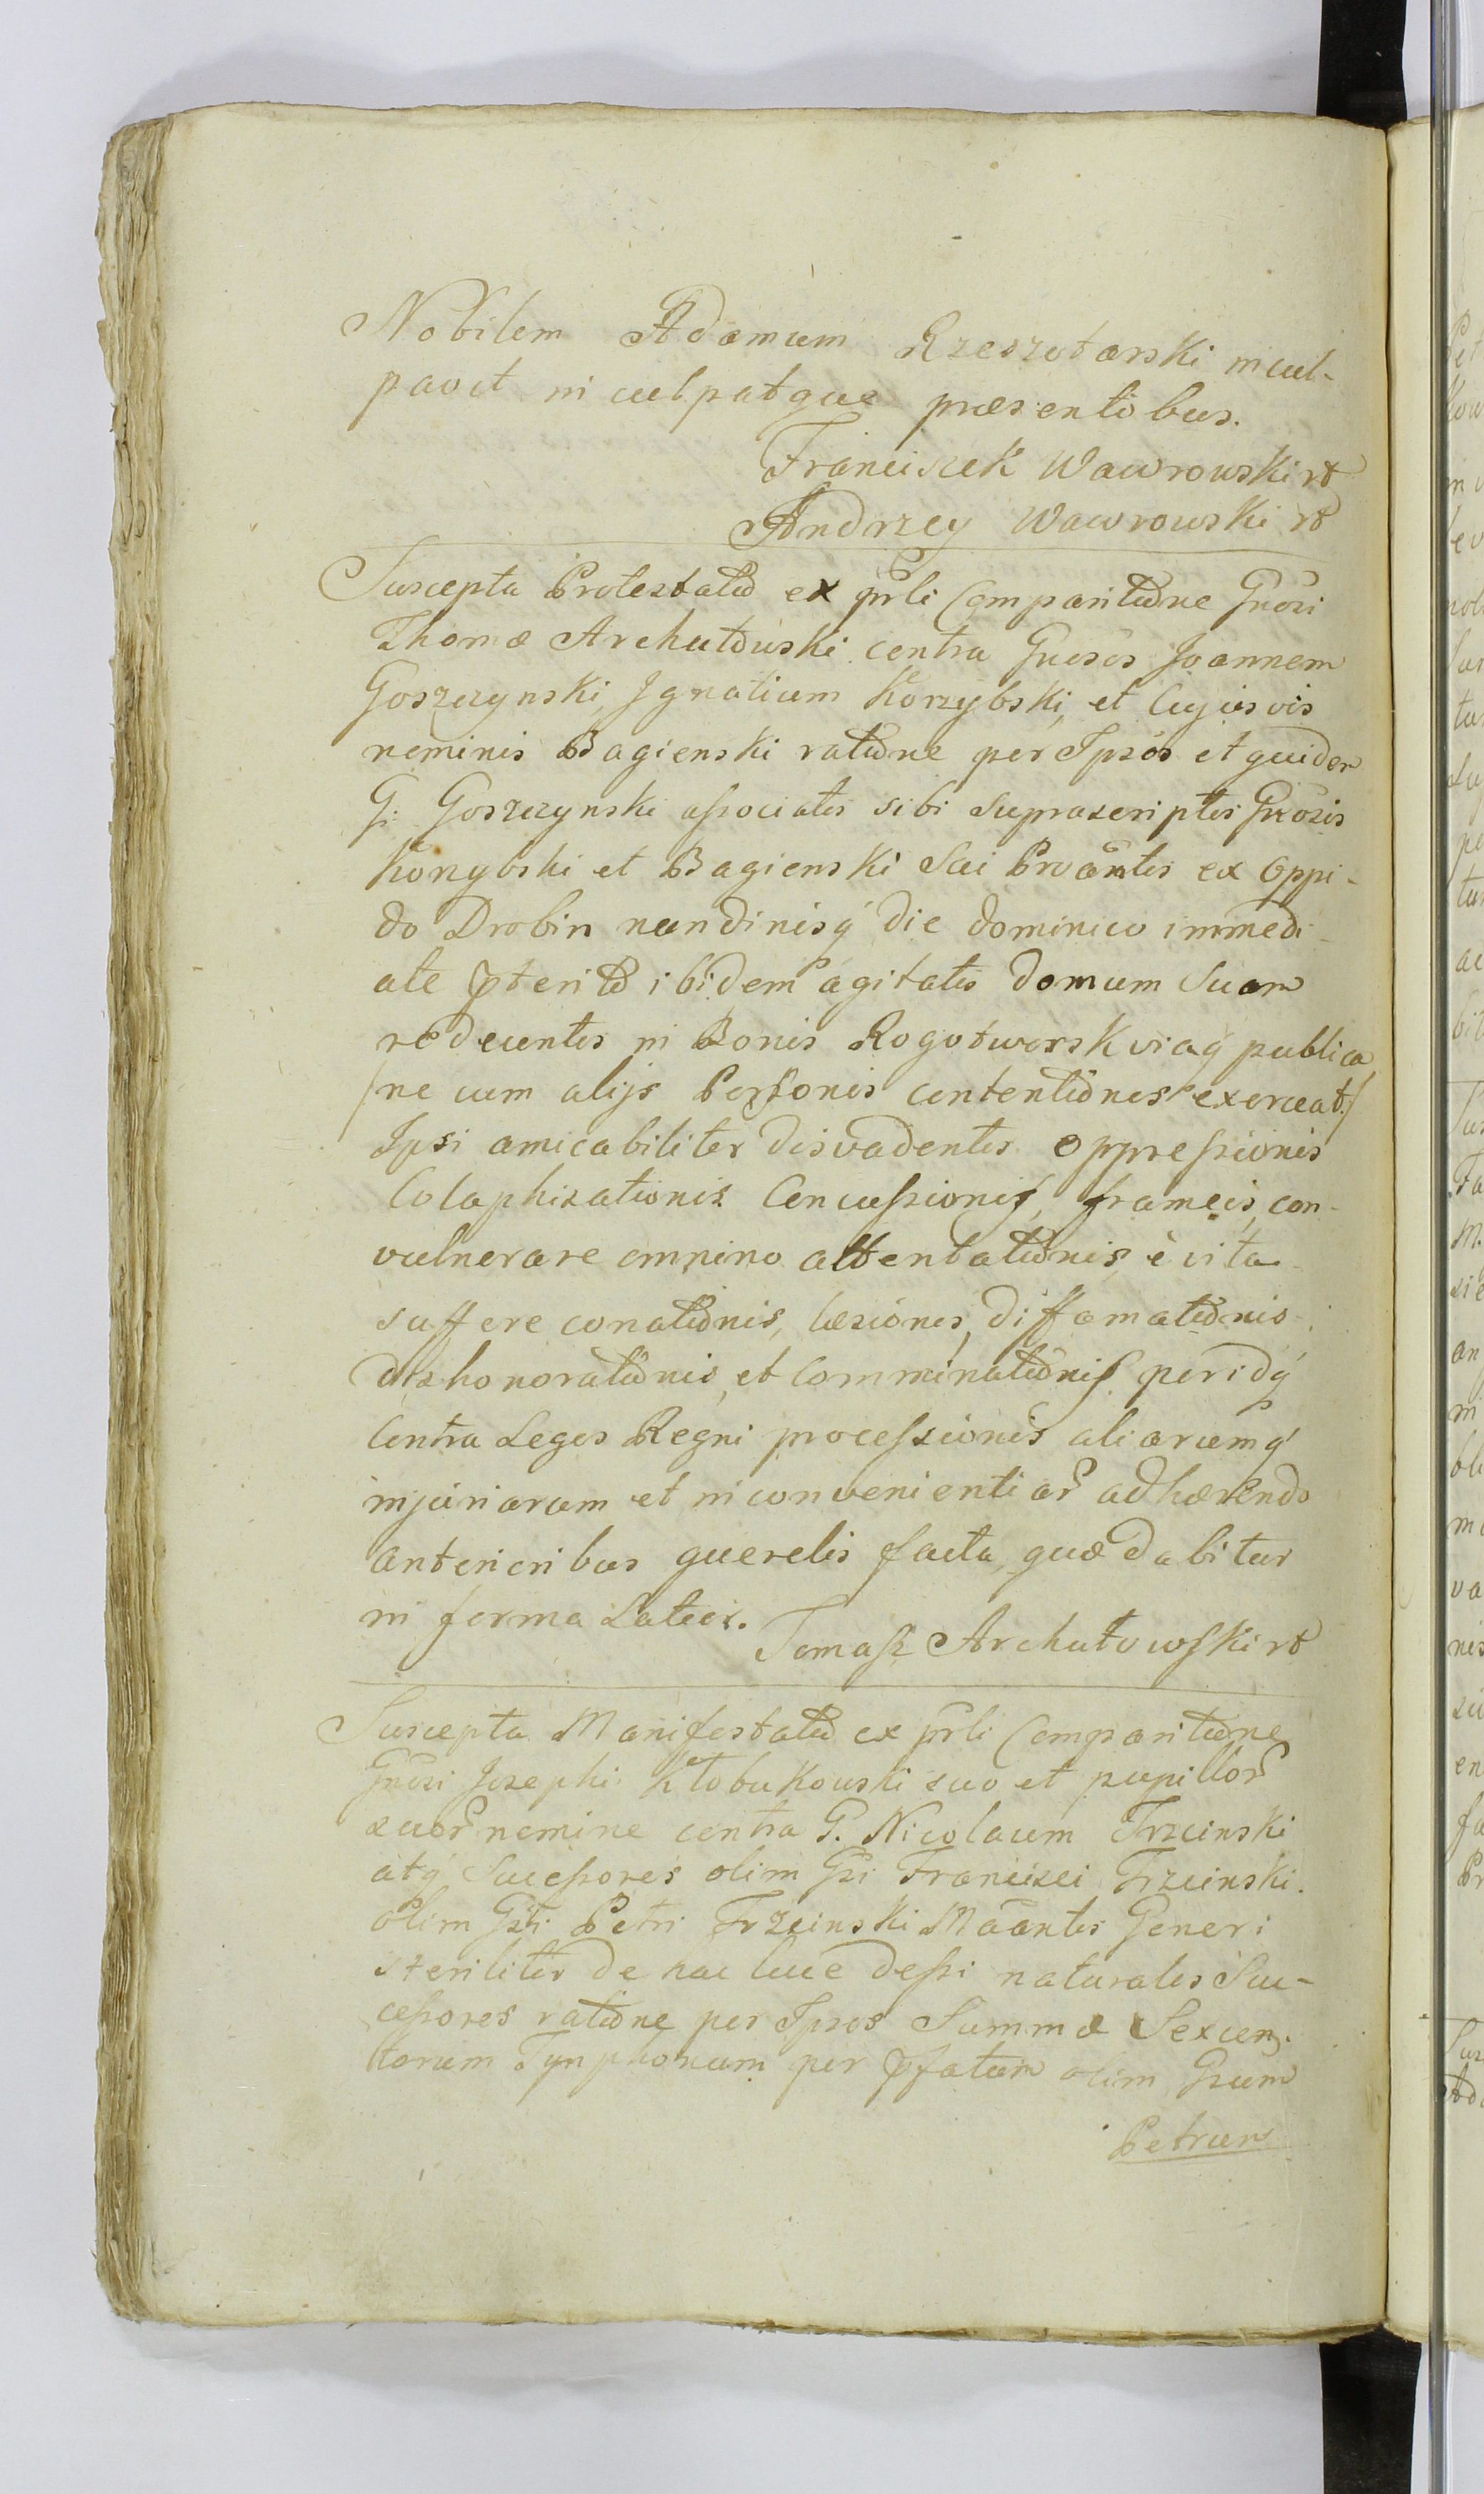 Nobilem Adamum Rzeszotarski incul-
pavit inculpatque præsentibus.
Franciszek Wawrowski rt
Andrzey Wawrowski rt
Suscepta Protestatio ex prli Comparitione Gnosi
Thomæ Archutowski contra Gnosos Joannem
Goszczynski, Ignatium Korzybski, et Cujusvis
nominis Bagienski ratione per Ipsos et quidem
G: Goszczynski aſsociatis sibi Suprascriptis Gnosis
Korzybski et Bagienski Sui Proantis ex Oppi-
do Drobin nundinisq́ die dominico immedi-
ate pterito ibidem agitatis domum Suam
redeuntis in Bonis Rogotworsk viaq́ publica
/ne cum alijs Personis contentiones exerceat/
Ipsi amicabiliter disvadentis oppreſsionis
Colaphisationis Concuſsionis, frameis, con-
vulnerare omnino attentationis, è vita
suffere conationis, læsionis, diffamationis
dishonorationis, et Comminationis peridq́
Contra Leges Regni proceſsionis aliarumq́
injuriarum et inconvenientiar adhærendo
anterioribus querelis facta, quæ dabitur
in forma Latiori.
Tomasz Archutowski rt
Suscepta Manifestatio ex prli Comparitione
Gnosi Josephi Kłobukowski suo et pupillor
suor nomine contra G. Nicolaum Trzcinski
atq́ Succeſsores olim Gsi Francisci Trzcinski.
olim Gsi Petri Trzcinski Maantis Generi
steriliter de hac luce deſsi naturales Suc-
ceſsores ratione per Ipsos Summæ Sexcen-
torum Tynphonum per pfatum olim Gsum
Petrum